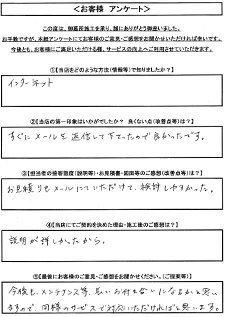 ＜お客様 アンケート＞
この度は、御墓所施工を承り、誠にありがとう御座いました。
お手数ですが、本紙アンケートにてお客様のご意見・ご感想をお聞かせいただければ幸いです。
今後とも、お客様にご満足いただける様、サービスの向上へご利用させていただきます。
①【当店をどのような方法（情報等）で知りましたか？】
インターネット
②【当店の第一印象はいかがでしたか？ 良くない点（改善点等）は？】
すぐにメールを返信して下さったので良かったです。
③【担当者の接客態度（説明等）・お見積書・図面等のご感想（改善点等）は？】
お見積りもメールにていただけて、検討しやすかった。
④【当店にてご契約を決めた理由・施工後のご感想は？】
説明が詳しかったから。
⑤【最後にお客様のご意見・ご感想をお聞かせください。（ご提案等）】
今後も、メンテナンス等、長いお付き合いになるかと思い
ますので、同様のサービスで対応いただければと思います。